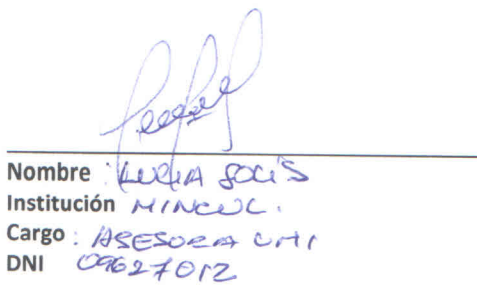 Nombre : LUCIA SOLIS
Institución MINCUL.
Cargo : ASESORA UMI
DNI 09627012